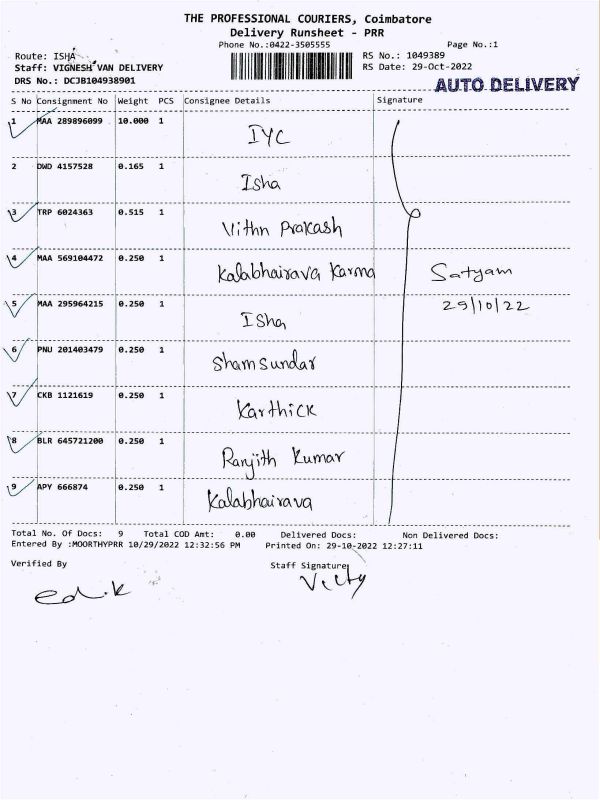 THE PROFESSIONAL COURIERS, Coimbatore
Delivery Runsheet - PRR
Phone No.:0422-3505555 Page No.:1
Route: ISHA RS No.: 1049389
Staff: VIGNESH VAN DELIVERY RS Date: 29-Oct-2022
DRS No.: DCJB104938901
AUTO DELIVERY
S No Consignment No Weight PCS Consignee Details Signature
1 MAA 289896099 10.000 1 IYC
2 DWD 4157528 0.165 1 Isha
3 TRP 6024363 0.515 1 Vithn Prakash
4 MAA 569104472 0.250 1 Kalabhairava Karma Satyam
29/10/22
5 MAA 295964215 0.250 1 Isha
6 PNU 201403479 0.250 1 Shamsundar
7 CKB 1121619 0.250 1 Karthick
8 BLR 645721200 0.250 1 Ranjith Kumar
9 APY 666874 0.250 1 Kalabhairava
Total No. Of Docs: 9 Total COD Amt: 0.00 Delivered Docs: Non Delivered Docs:
Entered By :MOORTHYPRR 10/29/2022 12:32:56 PM Printed On: 29-10-2022 12:27:11
Verified By Staff Signature